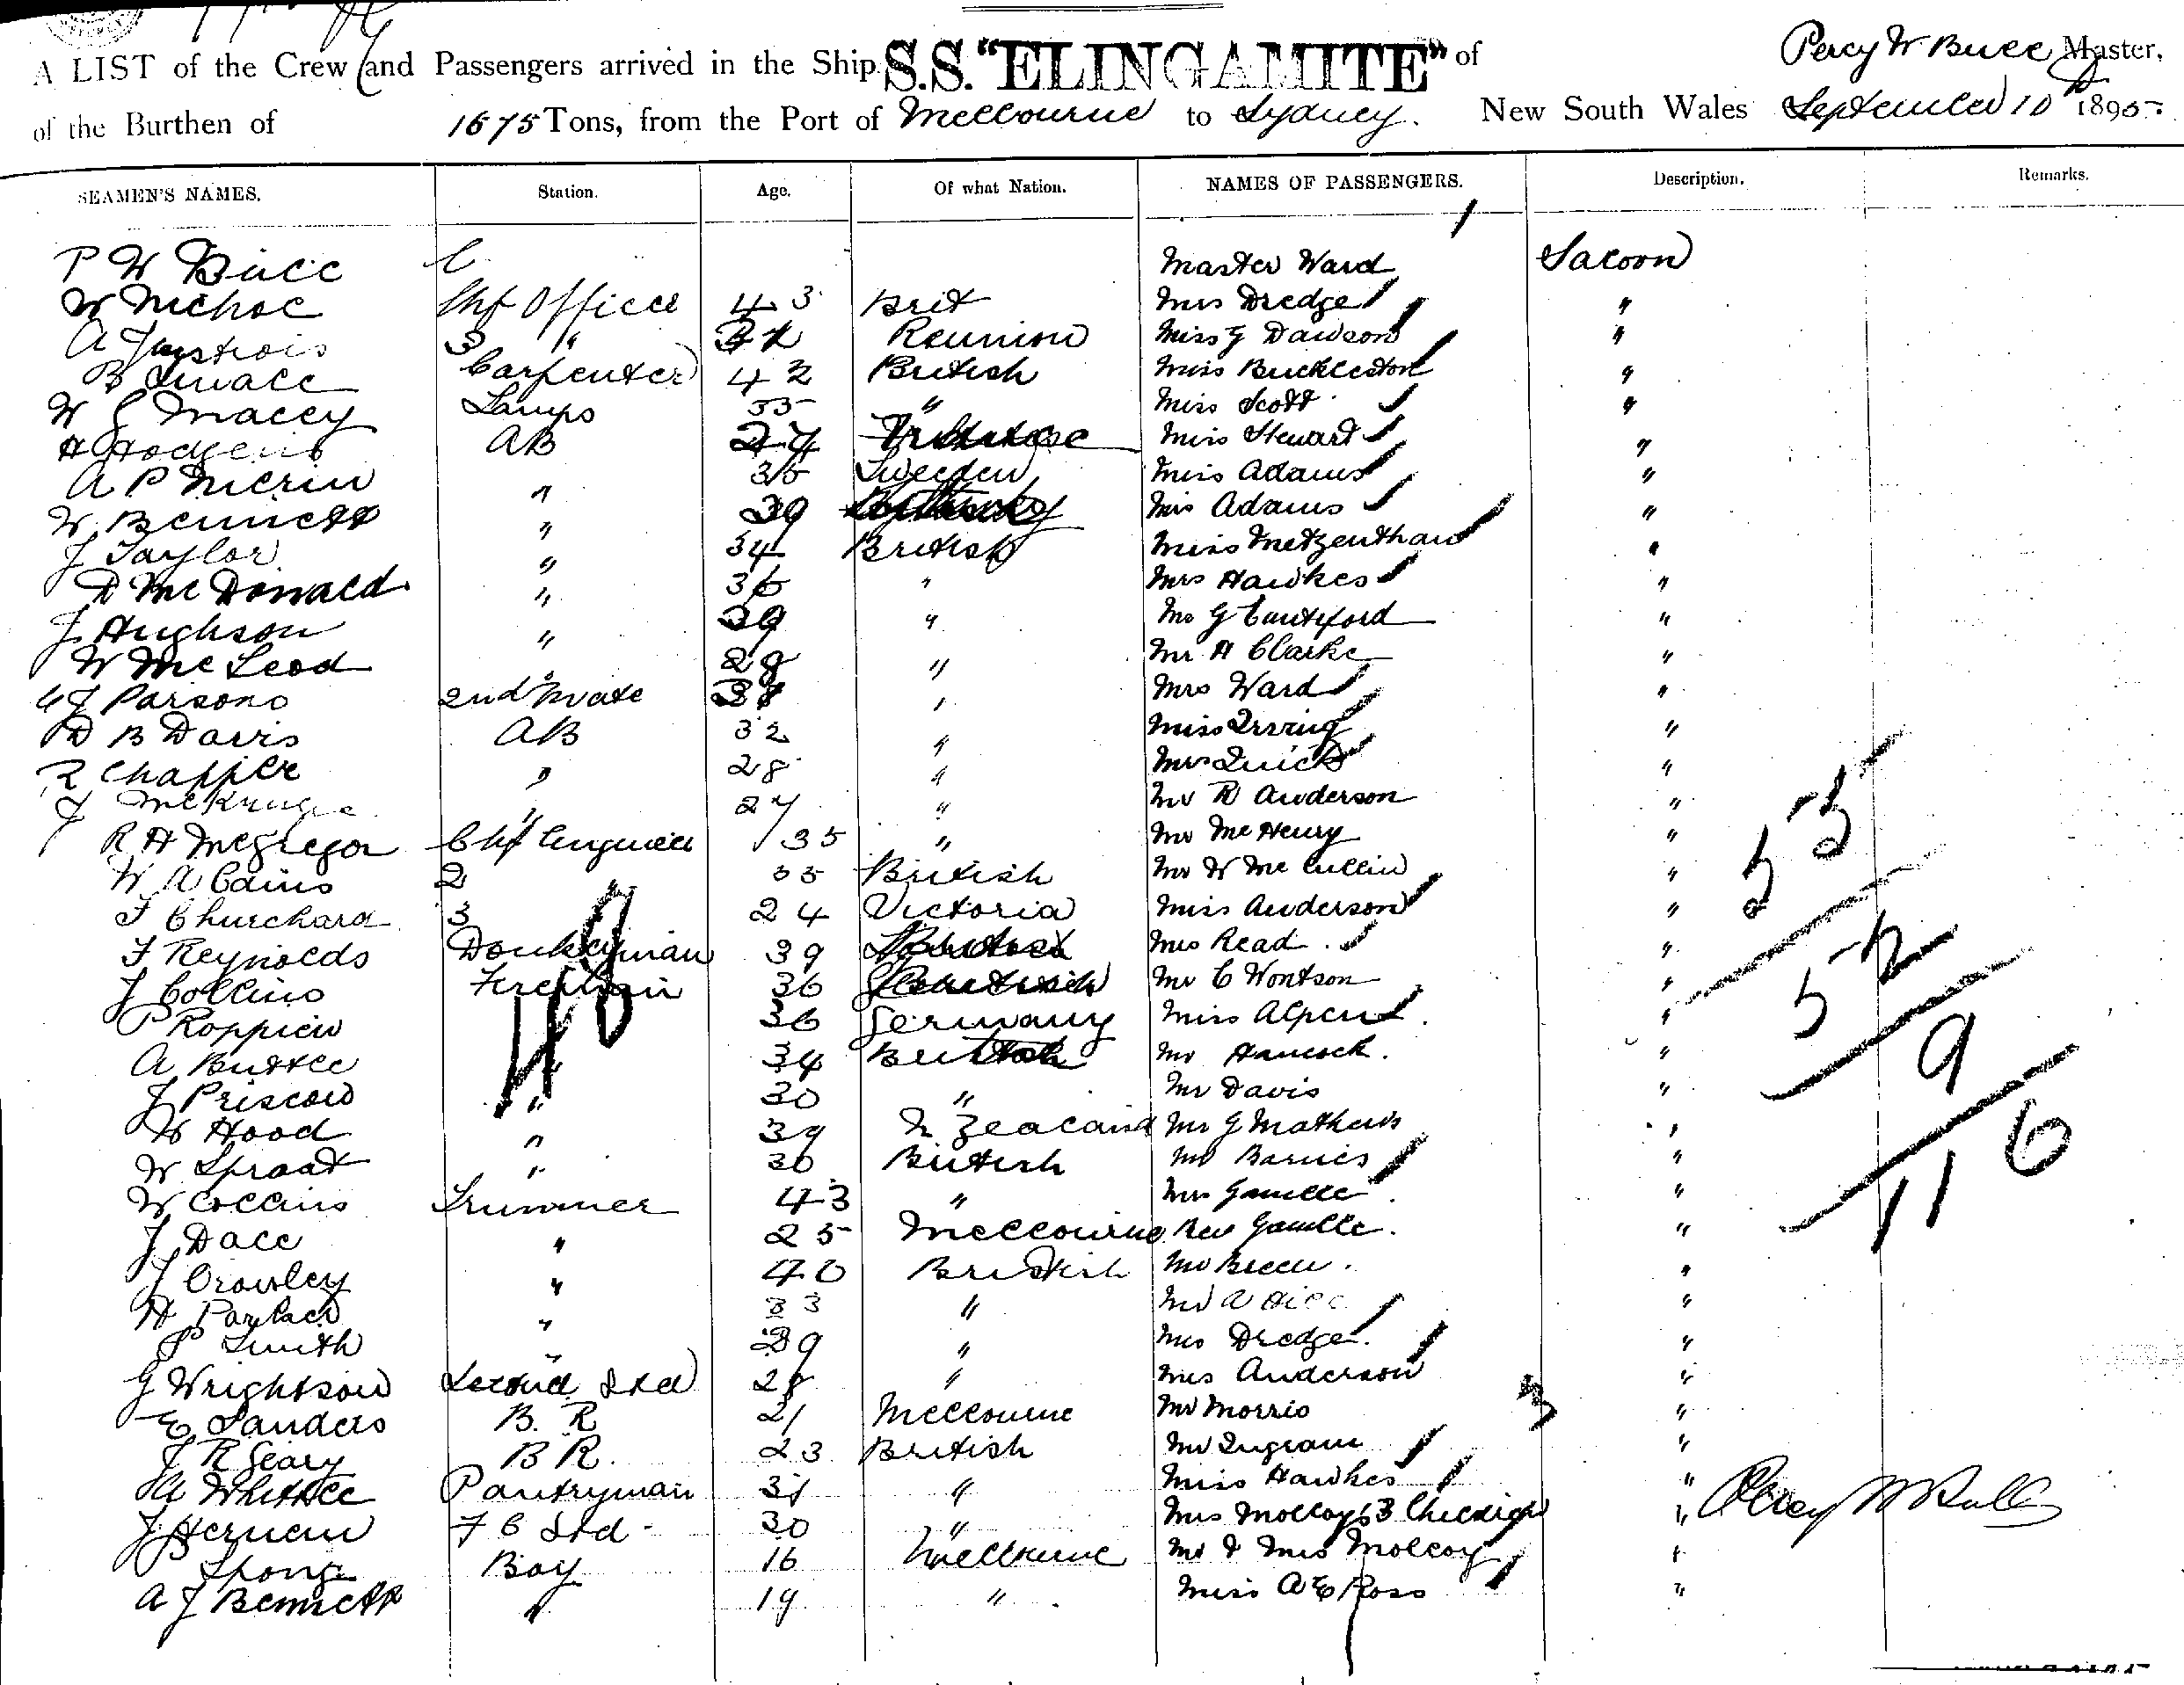 A LIST of the Crew and Passengers arrived in the Ship S.S. "ELINGAMITE" of Percy W. Bull Master,
of the Burthen of 1675 Tons, from the Port of Melbourne to Sydney. New South Wales September 10 1895
SEAMEN'S NAMES. Station. Age. Of what Nation. NAMES OF PASSENGERS. Description. Remarks.
P W Bull Master Ward Saloon
W Nichol Chf Officer 43 Brit Mrs Dredge "
3 " Reunion Miss G Dawson "
Carpenter 42 British Miss Buckleston "
W G Macey Lamps 35 " Miss Scott "
H Hodgens AB 27 Miss Stewart "
A P Nierin " 35 Sweeden Miss Adams "
W. Bennett " 39 Miss Adams "
J Taylor " 34 British Miss Metzenthan "
D McDonald " 36 " Mrs Hawkes "
J Hughson " 39 " Mr G Cantiford "
W McLeod 28 " Mr A Clarke "
G J Parsons 2nd Mate " Mrs Ward "
D B Davis AB 32 " Miss Irving "
R Chapple " 28 " Mrs Quick "
J " 27 " Mr R Anderson "
R H McGregor Chf Engineer 35 " Mr McHenry "
W A Cains 2 35 British Mr W McCullin "
F Churchard 3 24 Victoria Miss Anderson "
F Reynolds Donkeyman 39 Mrs Read "
J Collins Fireman 36 Mr C Wontson "
P Roppien 36 Germany Miss Alpen "
A Buttle 34 British Mr Hancock "
J Priscow " 30 " Mr Davis "
W Hood " 39 N Zealand Mr G Mathews "
W Spraat " 30 British Mr Barnes "
W Collins Trimmer 43 " Mrs Gamble "
J Dace " 25 Melbourne Rev Gamble "
J Crowley " 40 British Mr Breen "
H Parker " 33 " Mr A Hill "
P Smith " 39 " Mrs Dredge "
G Wrightson Second Std 28 " Mrs Anderson "
E Sanders B. R 21 Melbourne Mr Morris "
J R Geary B R. 23 British Mr Ingram "
A Whittle Pantryman 31 " Miss Hawkes "
J Hernen F C Std 30 " Mrs Molloy & 3 Children "
Sponge Boy 16 Melbourne Mr & Mrs Molloy "
A J Bennett " 19 " Miss A E Ross "
53
52
9
116
48
3
Percy W Bull